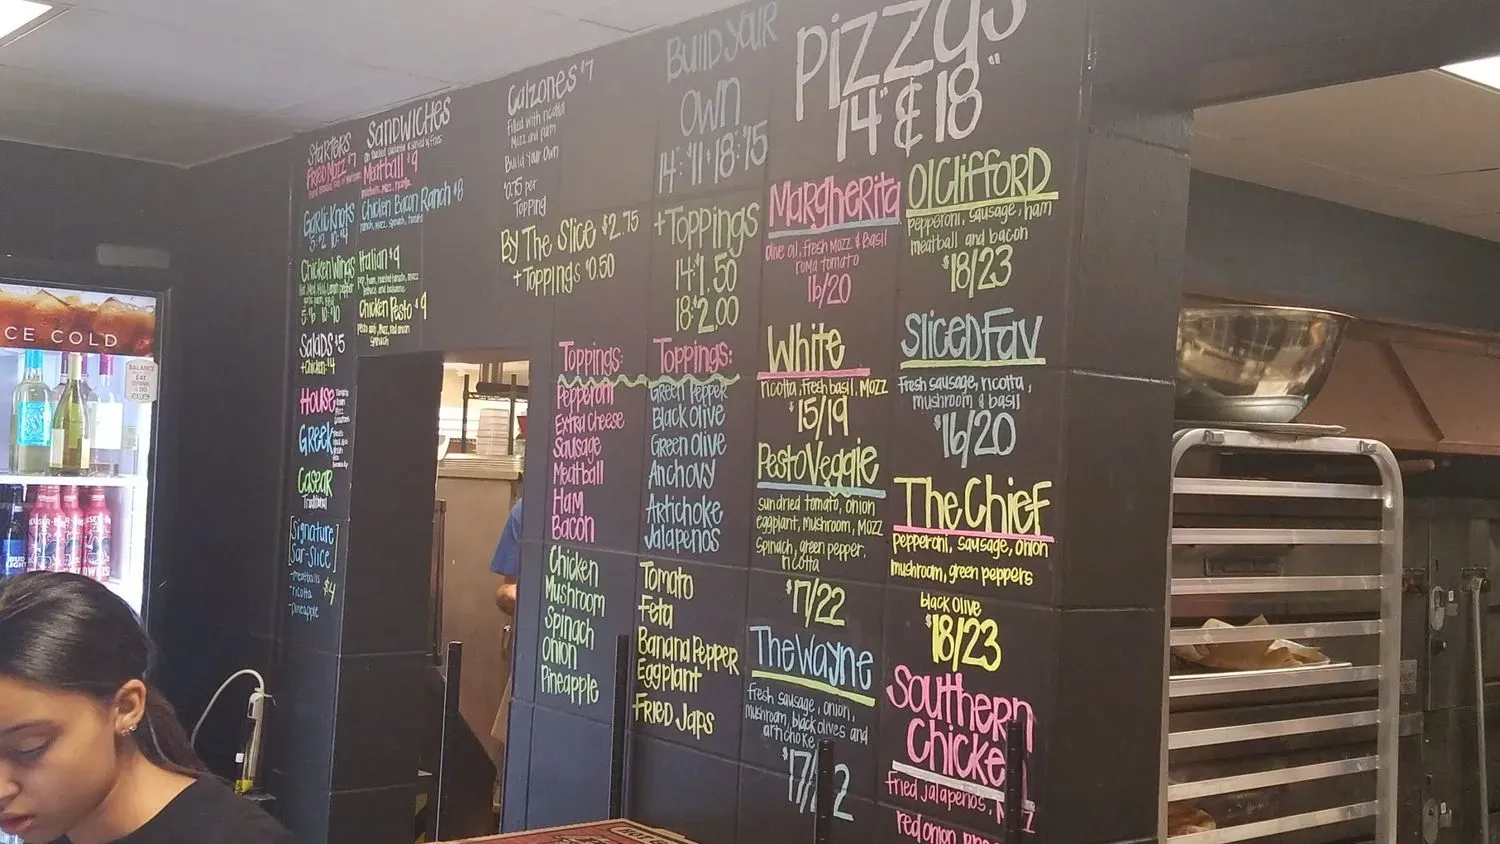 CE COLD
BALANCE
EAT
DRINK
& DO
STARTERS
Fried Mozz $7
Garlic Knots
5:$2 10:$4
Chicken Wings
Hot, Med, Mild, Lemon pepper
5:$6 10:$10
Salads $5
+Chicken $4
House
Greek
Caesar
Traditional
[Signature]
Bar-Slice
-meatballs
ricotta
-pineapple
$4
SANDWICHES
Meatball $9
meatballs, mozz, ricotta
Chicken Bacon Ranch $8
ranch, mozz, spinach, tomato
Italian $9
Chicken Pesto $9
pesto, mozz, red onion
spinach
Calzones $7
Filled with ricotta
Mozz and parm
Build Your Own
$0.75 per
Topping
By The Slice $2.75
+Toppings $0.50
Build Your
Own
14":$11 18":$15
+Toppings
14:$1.50
18:$2.00
Toppings:
Pepperoni
Extra Cheese
Sausage
Meatball
Ham
Bacon
Chicken
Mushroom
Spinach
Onion
Pineapple
Toppings:
Green Pepper
Black Olive
Green Olive
Anchovy
Artichoke
Jalapenos
Tomato
Feta
Banana Pepper
Eggplant
Fried Japs
Pizzas
14" & 18"
Margherita
olive oil, fresh mozz & Basil
roma tomato
16/20
White
ricotta, fresh basil, mozz
$15/19
Pesto Veggie
sundried tomato, onion
eggplant, mushroom, mozz
Spinach, green pepper,
ricotta
$17/22
The Wayne
fresh sausage, onion,
mushroom, black olives and
artichoke
Ol Clifford
pepperoni, sausage, ham
meatball and bacon
$18/23
Sliced Fav
fresh sausage, ricotta,
mushroom & basil
$16/20
The Chief
pepperoni, sausage, onion
mushroom, green peppers
black olive
$18/23
Southern
Chicken
fried jalapenos,
red onion